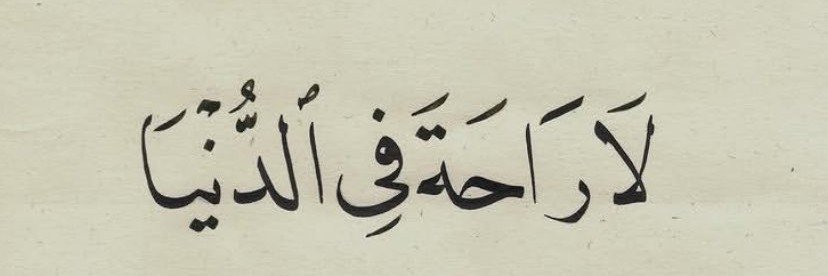 لَا رَاحَةَ فِي ٱلدُّنْيَا